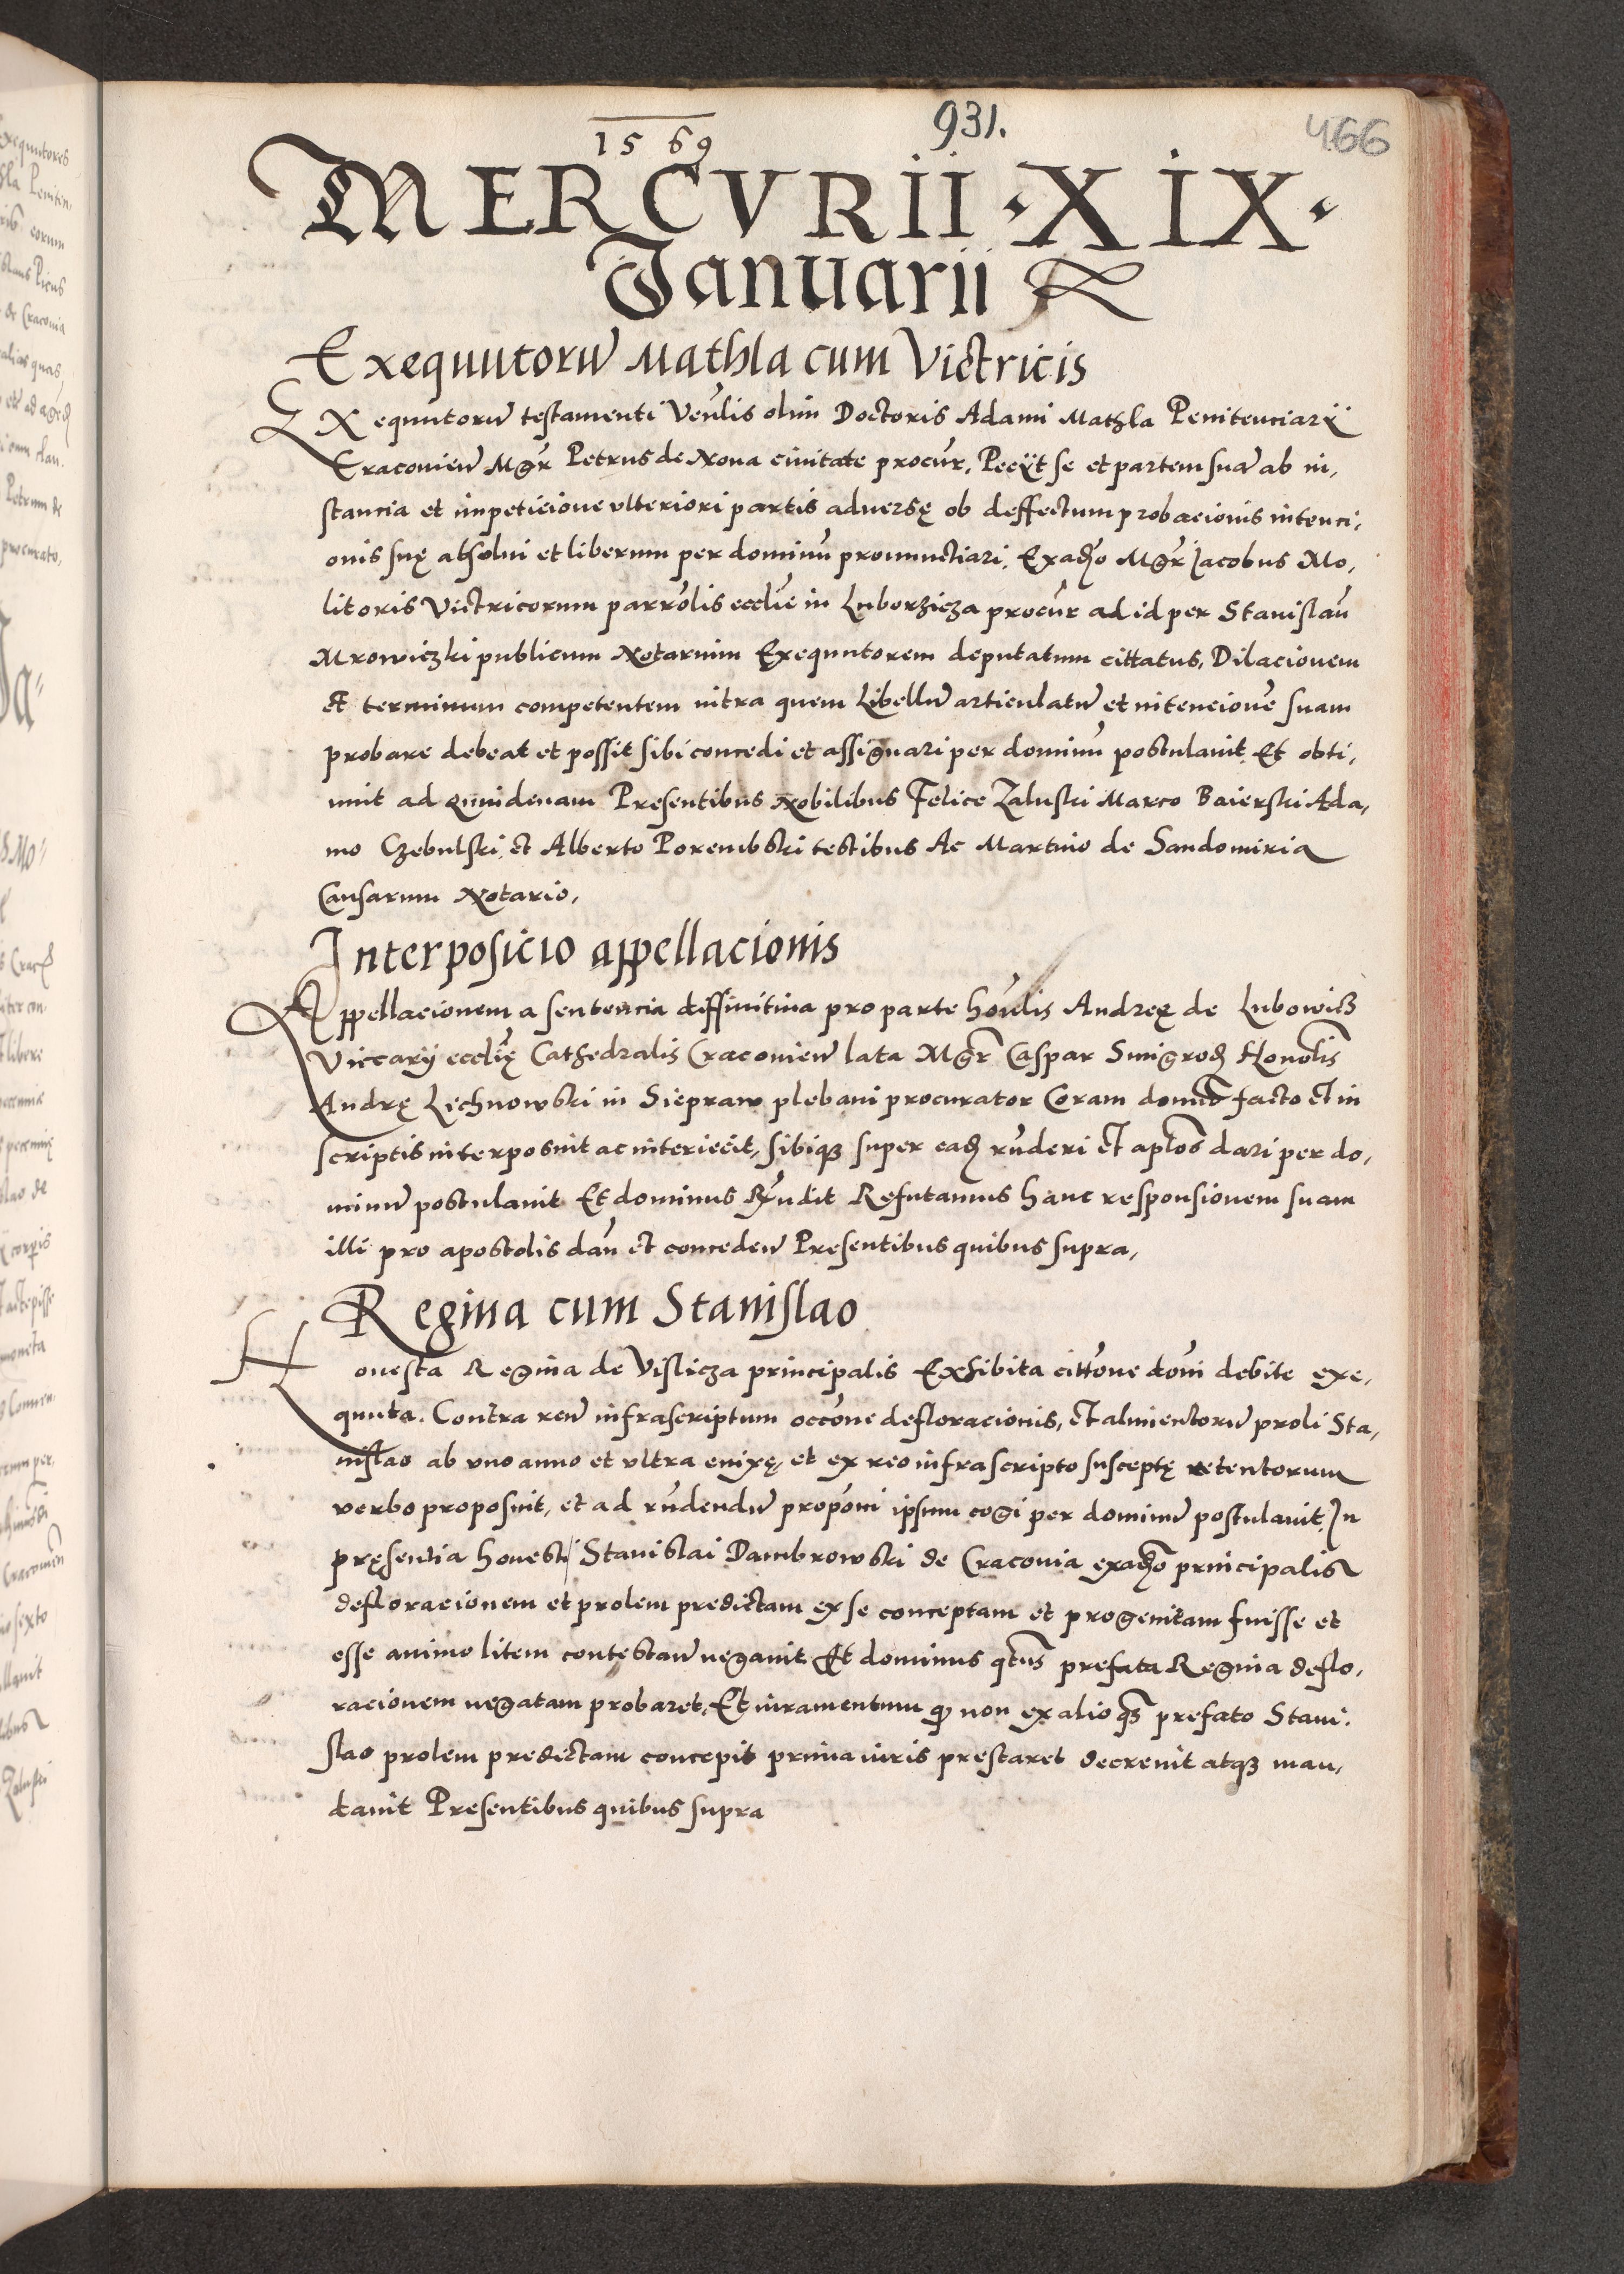 1569
931.
466
MERCVRII · XIX ·
Januarii
Exequutorū Mathla cum Victricis
EXequutorū testamenti Venlis olim Doctoris Adami Mathla Penitenciarÿ
Cracovień Mgr Petrus de Nova civitate procur, Pecÿt se et partem suā ab in,
stancia et impeticione ulteriori partis adversę ob deffectum probacionis intenci,
onis suę absolvi et liberum per dominū pronunctiari, Exadło Mgr Jacobus Mo,
litoris Victricorum parrolis ecclie in Luborzicza procur ad id per Stanislaū
Mrowiczki publicum Notarium Exequutorem deputatum cittatus, Dilacionem
Et terminum competentem intra quem Libellū articulatū et intencionē suam
probare debeat et possit sibi concedi et assignari per dominū postulavit, Et obti,
nuit ad quindenam Presentibus Nobilibus Felice Zaluski Marco Baierski Ada,
mo Czebulski, et Alberto Porembski testibus Ac Martino de Sandomiria
Causarum Notario,
Interposicio appellacionis
Appellacionem a sentencia diffinitiva pro parte honlis Andreę de Lubowiß
Viccarij ecclię Cathedralis Cracovień lata Mgr Caspar Smigrod Honolis
Andrę Lechnowski in Siepraw plebani procurator Coram domino facto et in
scriptis interposuit ac interiecit, sibiq3 super ead rnderi et aplos dari per do,
minū postulavit Et dominus Rndit Refutamus hanc responsionem suam
illi pro apostolis dań et conceden̄ Presentibus quibus supra,
Regina cum Stanislao
Honesta Regina de Vislicza principalis Exhibita cittone domi debite exe,
quuta. Contra reū infrascriptum occone defloracionis, et alimentorū proli Sta,
nislao ab uno anno et ultra enixę, et ex reo infrascripto susceptę retentorum
verbo proposuit, et ad rndendū proponi ipsum cogi per dominū postulavit, In
pręsentia honesti Stanislai Dambrowski de Cracovia exadło principalis
defloracionem et prolem predictam ex se conceptam et progenitam fuisse et
esse animo litem contestań negavit Et dominus qtus prefata Regina deflo,
racionem negatam probaret, Et iuramentum q non ex alio q3 prefato Stani,
slao prolem predictam concepit prima iuris prestaret decrevit atq3 man,
davit Presentibus quibus supra